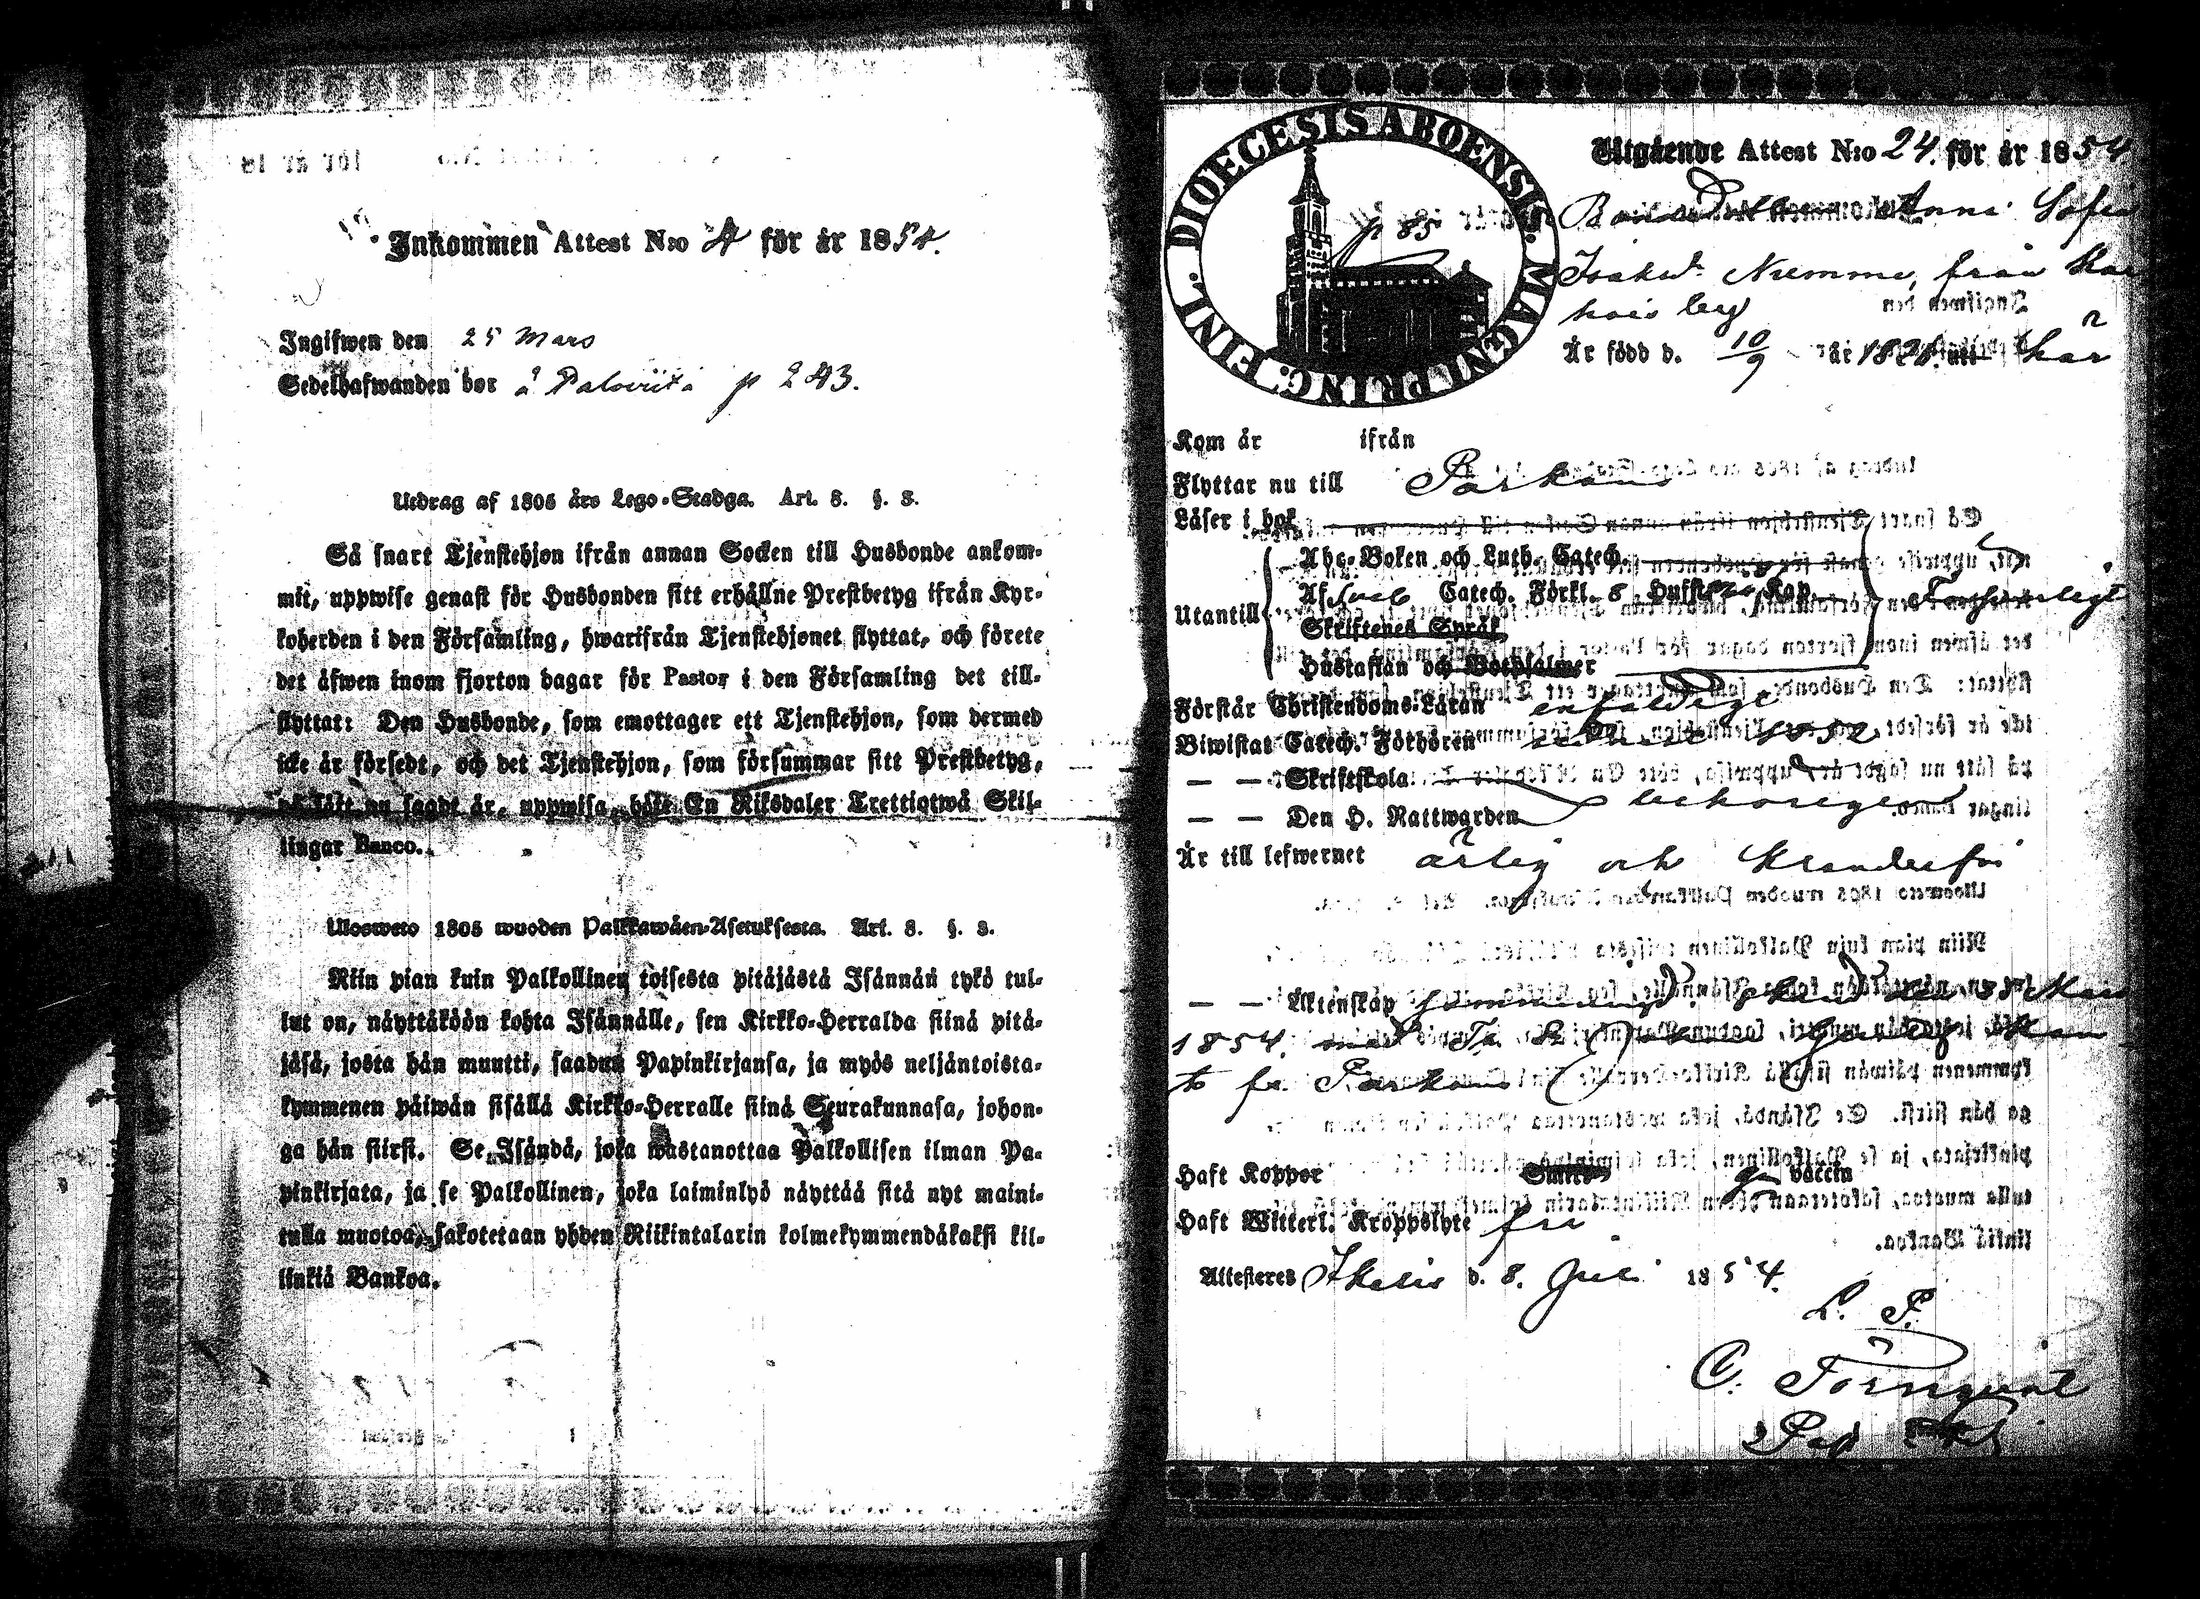 Inkommen Attest N:o 4 för år 1854.
Ingifwen den 25 Mars
Sedelhafwanden bor å Paloviita p 243.
Utdrag af 1805 års Lego-Stadga. Art. 8. §. 3.
Så snart Tjenstehjon ifrån annan Socken till Husbonde ankom-
mit, uppwise genast för Husbonden sitt erhållne Prestbetyg ifrån Kyr-
koherden i den Församling, hwarifrån Tjenstehjonet flyttat, och förete
det äfwen inom fjorton dagar för Pastor i den Församling det till-
flyttat: Den Husbonde, som emottager ett Tjenstehjon, som dermed
icke är försedt, och det Tjenstehjon, som försummar sitt Prestbetyg,
på sätt nu sagdt är, uppwisa, böte En Riksdaler Trettiotwå Skil-
lingar Banco.
Ulosweto 1805 wuoden Palkkawäen-Asetuksesta. Art. 8. §. 3.
Niin pian kuin Palkollinen toisesta pitäjästä Isännän tykö tul-
lut on, näyttäköön kohta Isännälle, sen Kirkko-Herralda siinä pitä-
jäsä, josta hän muutti, saadun Papinkirjansa, ja myös neljäntoista-
kymmenen päiwän sisällä Kirkko-Herralle siinä Seurakunnasa, johon-
ga hän siirsi. Se Isändä, joka wastanottaa Palkollisen ilman Pa-
pinkirjata, ja se Palkollinen, joka laiminlyö näyttää sitä nyt maini-
tulla muotoa, sakotetaan yhden Riikintalarin kolmekymmendäkaksi kil-
linkiä Bankoa.
DIOECESIS ABOENSIS. MAGNI PRINC. FINL.
p 85
Utgående Attest N:o 24. för år 1854
Bonded. Anna Sofia
Isaksd. Niemme, från Kar
hois by
Är född d. 10/9 år uti här
Kom år ifrån
Flyttar nu till Parkano
Läser i bok
Utantill
Abc-Boken och Luth. Catech.
Af Sveb Catech. Förkl. 8 Hufst Kap
Skriftenes Språk
Hustaflan och Botpsalmer
Förstår Christendoms-Läran enfaldigt
Biwistat Catech. Förhören 1852
— — Skriftskola
— — Den H. Nattwarden behörigen
Är till lefwernet ärlig och
— — Äktenskap den 25 Mars
1854. med
fr. Parkano
Haft Koppor Smitto vaccin
Haft Witterl. Kroppslyte fri
Attesteras Ikalis d. 8. Juli 1854.
L. P.
C. Törnqvist